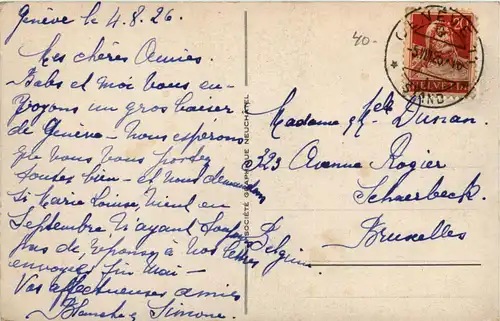 Genève le 4.8.26.
Mes chères Amies.
Babs et moi vous en-
voyons un gros baiser
de Genève - Nous espérons
que vous vous portez
toutes bien - et vous demandons
si Marie Louise vient en
Septembre, N'ayant toujours
pas de réponse à nos lettres
envoyées fin mai -
Vos affectueuses amies
Blanche & Simone.
40-
GENÈVE
STAND
20
HELVETIA
SOCIÉTÉ GRAPHIQUE NEUCHATEL
Madame & Mlle Dussan
323 Avenue Rogier
Schaerbeck.
Bruxelles
Belgique